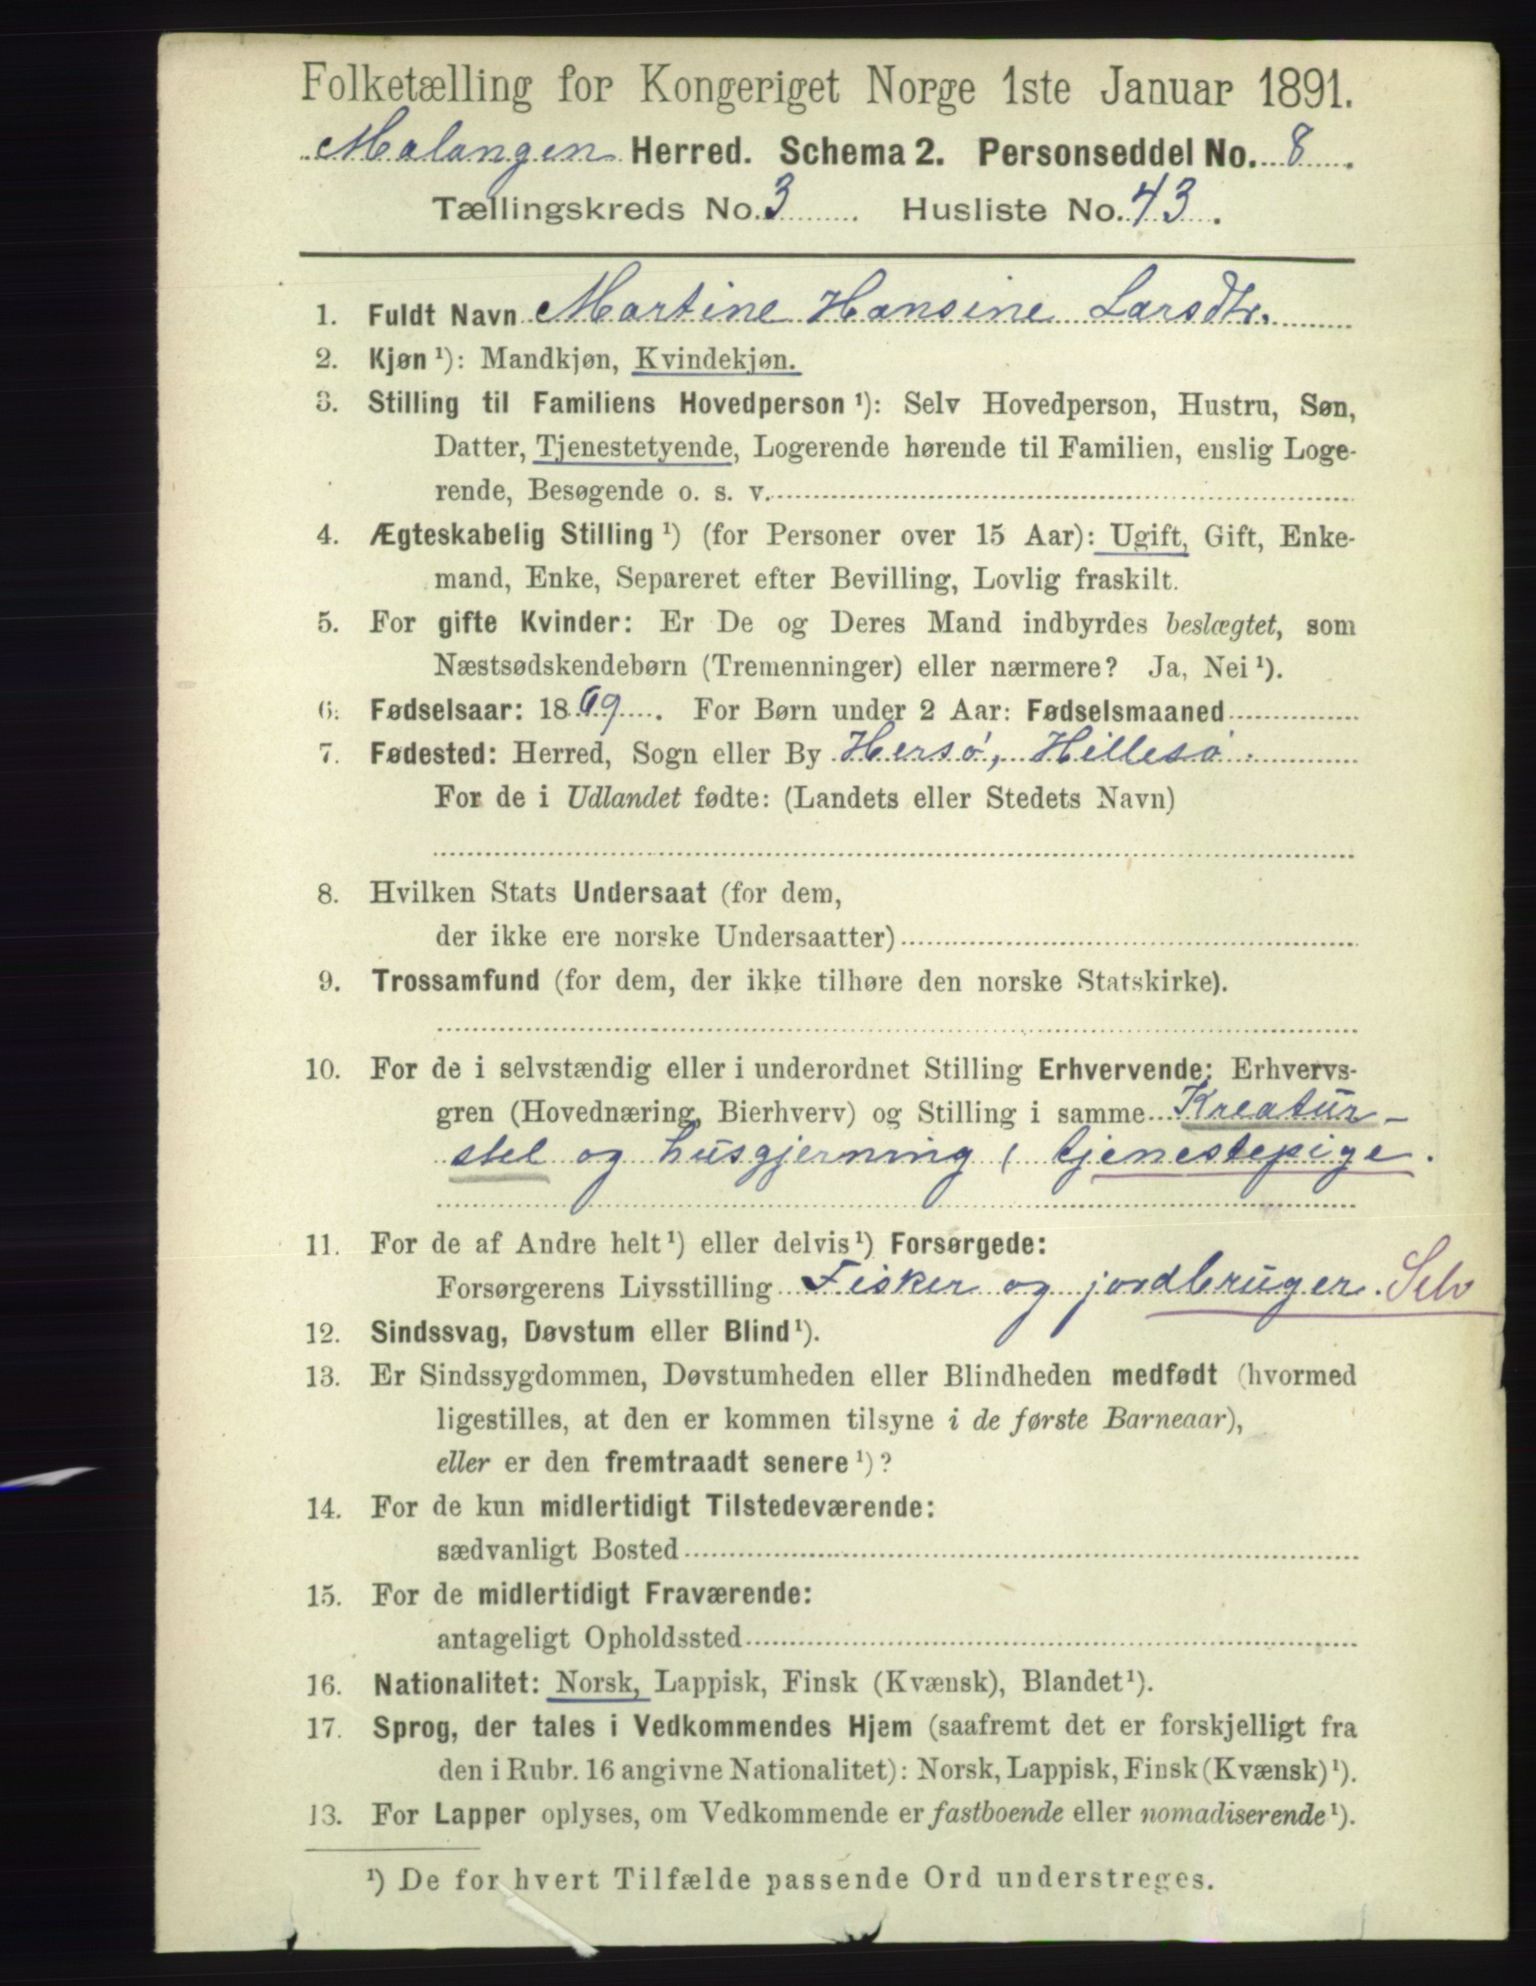 Folketælling for Kongeriget Norge 1ste Januar 1891.
Malangen Herred. Schema 2. Personseddel No. 8.
Tællingskreds No. 3. Husliste No. 43.
1. Fuldt Navn Martine Hansine Larsdtr.
2. Kjøn ¹): Mandkjøn, Kvindekjøn.
3. Stilling til Familiens Hovedperson ¹): Selv Hovedperson, Hustru, Søn,
Datter, Tjenestetyende, Logerende hørende til Familien, enslig Loge-
rende, Besøgende o. s. v.
4. Ægteskabelig Stilling ¹) (for Personer over 15 Aar): Ugift, Gift, Enke-
mand, Enke, Separeret efter Bevilling, Lovlig fraskilt.
5. For gifte Kvinder: Er De og Deres Mand indbyrdes beslægtet, som
Næstsødskendebørn (Tremenninger) eller nærmere? Ja, Nei ¹).
6. Fødselsaar: 1869. For Børn under 2 Aar: Fødselsmaaned
7. Fødested: Herred, Sogn eller By Hersø, Hillesø.
For de i Udlandet fødte: (Landets eller Stedets Navn)
8. Hvilken Stats Undersaat (for dem,
der ikke ere norske Undersaatter)
9. Trossamfund (for dem, der ikke tilhøre den norske Statskirke).
10. For de i selvstændig eller i underordnet Stilling Erhvervende: Erhvervs-
gren (Hovednæring, Bierhverv) og Stilling i samme Kreatur-
stel og husgjerning, tjenestepige.
11. For de af Andre helt ¹) eller delvis ¹) Forsørgede:
Forsørgerens Livsstilling Fisker og jordbruger. Selv
12. Sindssvag, Døvstum eller Blind ¹).
13. Er Sindssygdommen, Døvstumheden eller Blindheden medfødt (hvormed
ligestilles, at den er kommen tilsyne i de første Barneaar),
eller er den fremtraadt senere ¹)?
14. For de kun midlertidigt Tilstedeværende:
sædvanligt Bosted
15. For de midlertidigt Fraværende:
antageligt Opholdssted
16. Nationalitet: Norsk, Lappisk, Finsk (Kvænsk), Blandet ¹).
17. Sprog, der tales i Vedkommendes Hjem (saafremt det er forskjelligt fra
den i Rubr. 16 angivne Nationalitet): Norsk, Lappisk, Finsk (Kvænsk) ¹).
13. For Lapper oplyses, om Vedkommende er fastboende eller nomadiserende ¹).
¹) De for hvert Tilfælde passende Ord understreges.